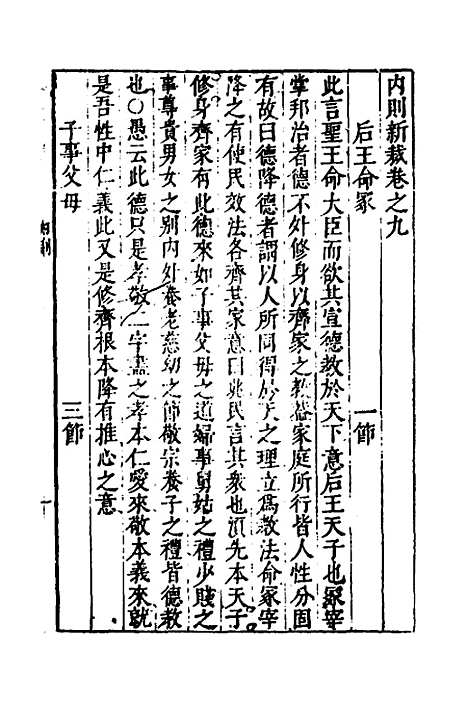 內則新裁卷之九
后王命冢　一節
此言聖王命大臣而欲其宣德教於天下意后王天子也冢宰
掌邦治者德不外修身以齊家之教蓋家庭所行皆人性分固
有故曰德降德者謂以人所同得於天之理立爲教法命冢宰
降之有使民效法各齊其家意曰兆民言其衆也須先本天子
修身齊家有此德來如子事父母之道婦事舅姑之禮少賤之
事尊貴男女之別內外養老慈幼之節敬宗養子之禮皆德教
也○愚云此德只是孝敬二字盡之孝本仁愛來敬本義來就
是吾性中仁義此又是修齊根本降有推心之意
子事父母　三節
一